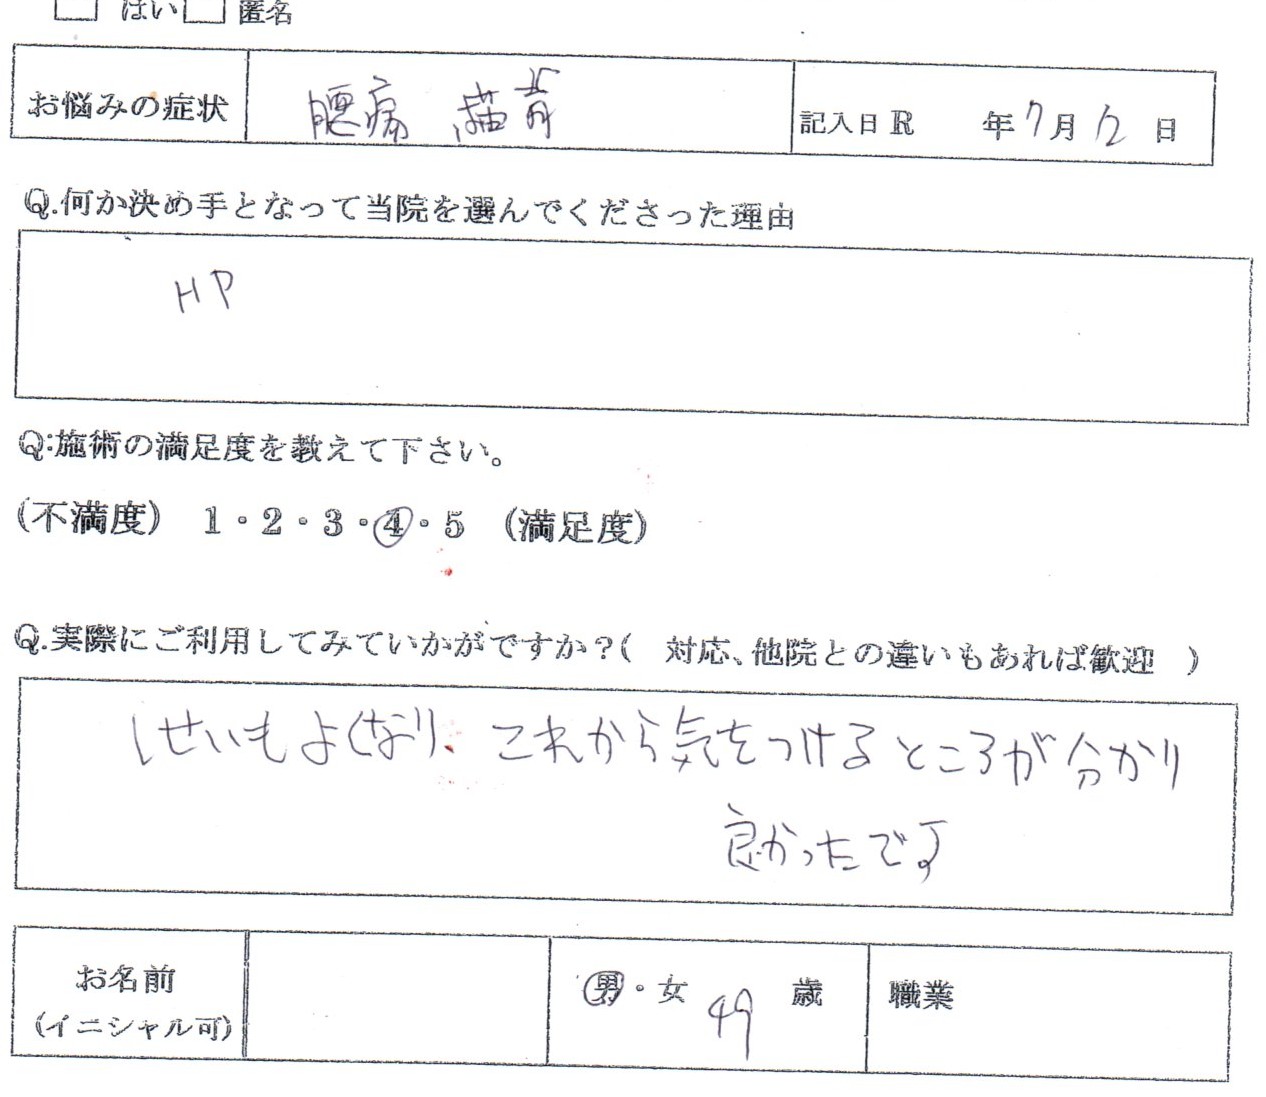 はい 匿名
お悩みの症状 腰痛 猫背 記入日 R 年 7月 12 日
Q.何か決め手となって当院を選んでくださった理由
HP
Q:施術の満足度を教えて下さい。
(不満度) 1・2・3・4・5 (満足度)
Q.実際にご利用してみていかがですか?( 対応、他院との違いもあれば歓迎 )
しせいもよくなり、これから気をつけるところが分かり
良かったです
お名前 男・女 49 歳 職業
(イニシャル可)